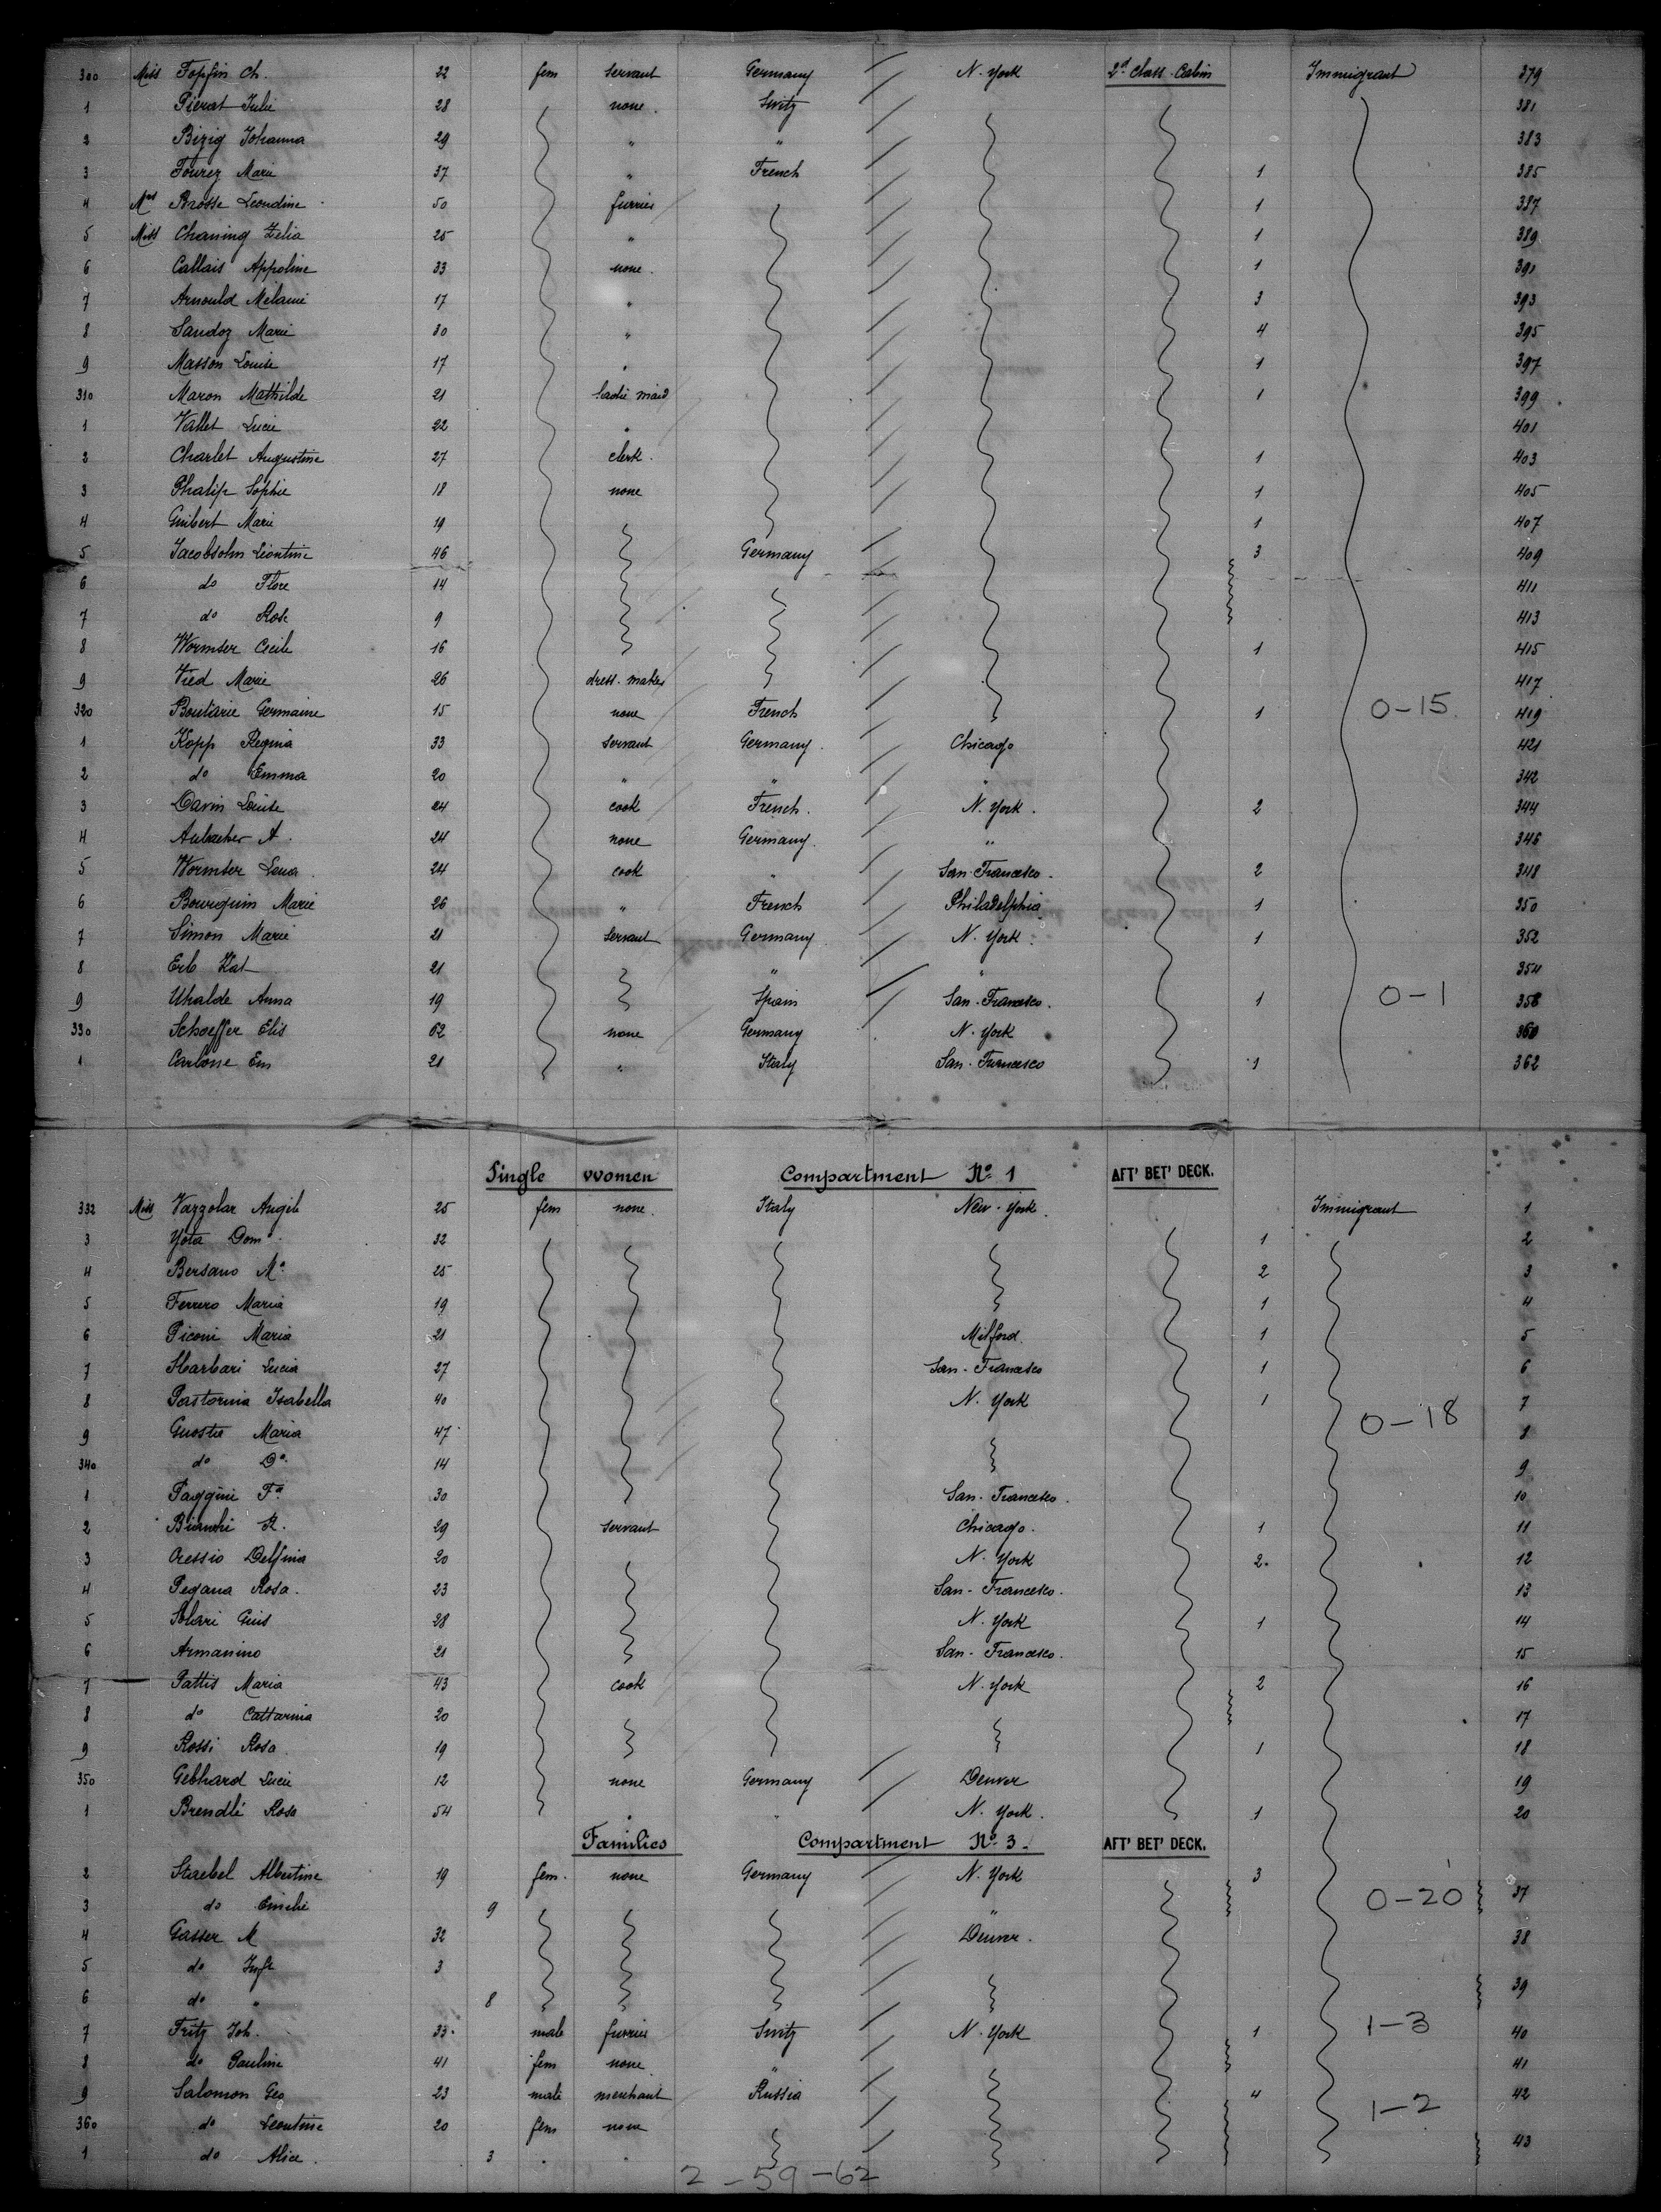 300 Miss Topfin Ch. 22 fem servant Germany N. York 2d Class Cabin Immigrant 379
1 Pierat Julie 28 none Switz 381
2 Bizig Johanna 29 " " 383
3 Fourez Marie 37 " French 1 385
4 Mrs Brosse Leondine 50 furrier 1 387
5 Miss Chaning Zelia 25 " 1 389
6 Callais Appoline 33 none 1 391
7 Arnould Melanie 17 " 3 393
8 Sandoz Marie 30 " 4 395
9 Masson Louise 17 " 1 397
310 Maron Mathilde 21 ladie maid 1 399
1 Vallet Lucie 22 " 401
2 Charlet Augustine 27 clerk 1 403
3 Phalip Sophie 18 none 1 405
4 Guibert Marie 19 1 407
5 Jacobsohn Leontine 46 Germany 3 409
6 do Flore 14 411
7 do Rose 9 413
8 Wormser Cecile 16 1 415
9 Vied Marie 26 dress-maker 417
320 Boutarie Germaine 15 none French 1 0-15 419
1 Kopp Regina 33 servant Germany Chicago 421
2 do Emma 20 " " " 342
3 Davin Louise 24 cook French N. York 2 344
4 A. 24 none Germany " 346
5 Wormser Lena 24 cook " San-Francesco 2 348
6 Bourquin Marie 26 " French Philadelphia 1 350
7 Simon Marie 21 servant Germany N. York 1 352
8 Erb Kat 21 " " 354
9 Uhalde Anna 19 Spain San-Francesco 1 0-1 356
330 Schoeffer Elis 62 none Germany N. York 360
1 Carlone Em 21 " Italy San-Francesco 1 362
Single women Compartment No. 1 AFT' BET' DECK.
332 Miss Vazzolar Angele 25 fem none Italy New-York Immigrant 1
3 Yota Dom 32 1 2
4 Bersano Ma 25 2 3
5 Ferrero Maria 19 1 4
6 Piconi Maria 21 Milford 1 5
7 Sbarbari Lucia 27 San-Francesco 1 6
8 Pastorina Isabella 40 N. York 1 7
9 Guostra Maria 47 0-18 8
340 do Da 14 9
1 Paggini Fa 30 San-Francesco 10
2 Bianchi R. 29 servant Chicago 1 11
3 Oressio Delfina 20 N. York 2 12
4 Pegana Rosa 23 San-Francesco 13
5 Solari Guis 28 N. York 1 14
6 Armanino 21 San-Francesco 15
7 Pattis Maria 43 cook N. York 2 16
8 do Cattarina 20 17
9 Rossi Rosa 19 1 18
350 Gebhard Lucie 12 none Germany Denver 19
1 Brendlé Rosa 54 " " N. York 1 20
Families Compartment No. 3 AFT' BET' DECK.
2 Staebel Albertine 19 fem none Germany N. York 3
3 do Emilie 9 " 0-20 37
4 Gasser M 32 Denver 38
5 do Inft 3 39
6 do " 8
7 Fritz Joh. 33 male furrier Switz N. York 1 1-3 40
8 do Pauline 41 fem none " 41
9 Salomon Geo 23 male merchant Russia 4 42
360 do Leontine 20 fem none 1-2
1 do Alice 3 " " 43
2-59-62